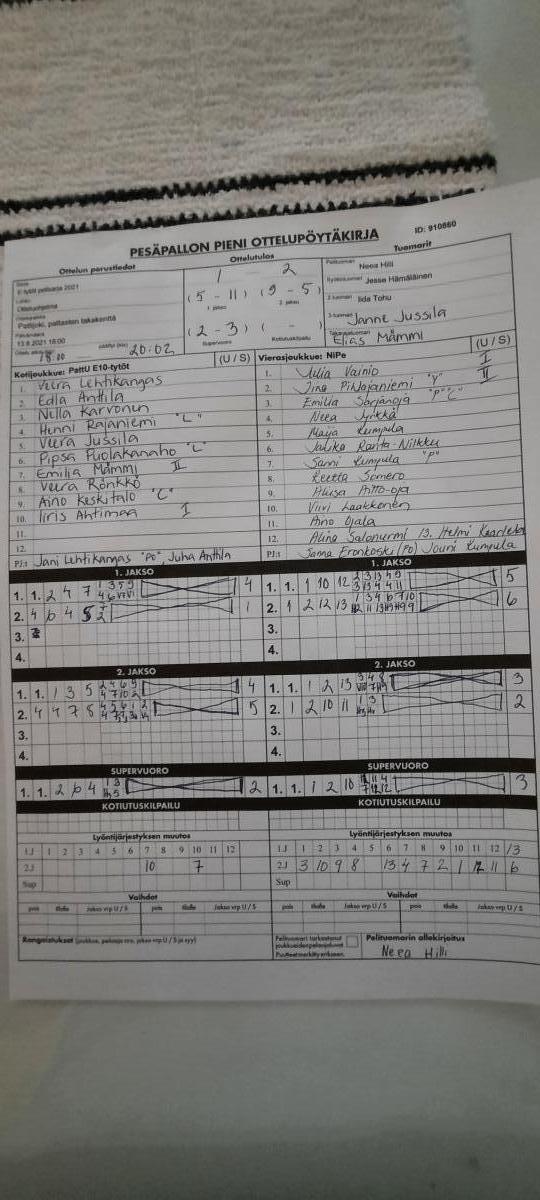 PESÄPALLON PIENI OTTELUPÖYTÄKIRJA
ID: 910660
Ottelun perustiedot
Ottelutulos
Tuomarit
Sarja
E-tytöt pohjoinen 2021
Otteluohjelma
Patijoki, pattasten takakenttä
13.8.2021 18:00
18:00
20:02
1 2
(5 - 11) (9 - 5)
1. jakso 2. jakso
(2 - 3) ( - )
Supervuoro Kotiutuskilpailu
Pelituomari
Neea Hilli
Jesse Hämäläinen
2-tuomari
Iida Tohu
3-tuomari
Janne Jussila
Takarajatuomari
Elias Mämmi
Kotijoukkue: PattU E10-tytöt (U / S)
1. Veera Lehtikangas
2. Edla Anttila
3. Nella Karvonen
4. Henni Rajaniemi "L"
5. Veera Jussila
6. Pipsa Puolakanaho "L"
7. Emilia Mämmi II
8. Veera Rönkkö
9. Aino Keskitalo "C"
10. Iiris Ahtimaa I
11.
12.
PJ:t Jani Lehtikangas "Po", Juha Anttila
Vierasjoukkue: NiPe (U / S)
1. Julia Vainio I
2. Iina Pihlajaniemi "Y" II
3. Emilia Sarjanoja "P" "C"
4. Neea Jyrkkä
5. Maija Kumpula
6. Jalika Ranta-Nilkku
7. Sanni Kumpula "P"
8. Reetta Somero
9. Aluisa Aitto-oja
10. Viivi Laakkonen
11. Aino Ojala
12. Alina Salonurmi 13. Helmi Kaarlela
PJ:t Sanna Eronkoski (Po) Jouni Kumpula
1. JAKSO
1. JAKSO
1. 1. 2 4 7 4
2. 4 6 4 5 1
3.
4.
1. 1. 1 10 12 5
2. 1 2 12 13 6
3.
4.
2. JAKSO
2. JAKSO
1. 1. 1 3 5 4
2. 4 4 7 8 5
3.
4.
1. 1. 1 2 13 3
2. 1 2 10 11 2
3.
4.
SUPERVUORO
SUPERVUORO
1. 1. 2 6 4 2
1. 1. 1 2 10 3
KOTIUTUSKILPAILU
KOTIUTUSKILPAILU
Lyöntijärjestyksen muutos
Lyöntijärjestyksen muutos
1.J 1 2 3 4 5 6 7 8 9 10 11 12
2.J 10 7
Sup
1.J 1 2 3 4 5 6 7 8 9 10 11 12 13
2.J 3 10 9 8 13 4 7 2 1 12 11 6
Sup
Vaihdot
Vaihdot
pois tilalle Jakso vrp U / S pois tilalle Jakso vrp U / S
pois tilalle Jakso vrp U / S pois tilalle Jakso vrp U / S
Rangaistukset (joukkue, pelaaja nro, jakso vrp U / S ja syy)
Pelituomari tarkastanut
joukkueiden pelaajaluvat
Puutteet merkitty erikseen.
Pelituomarin allekirjoitus
Neea Hilli